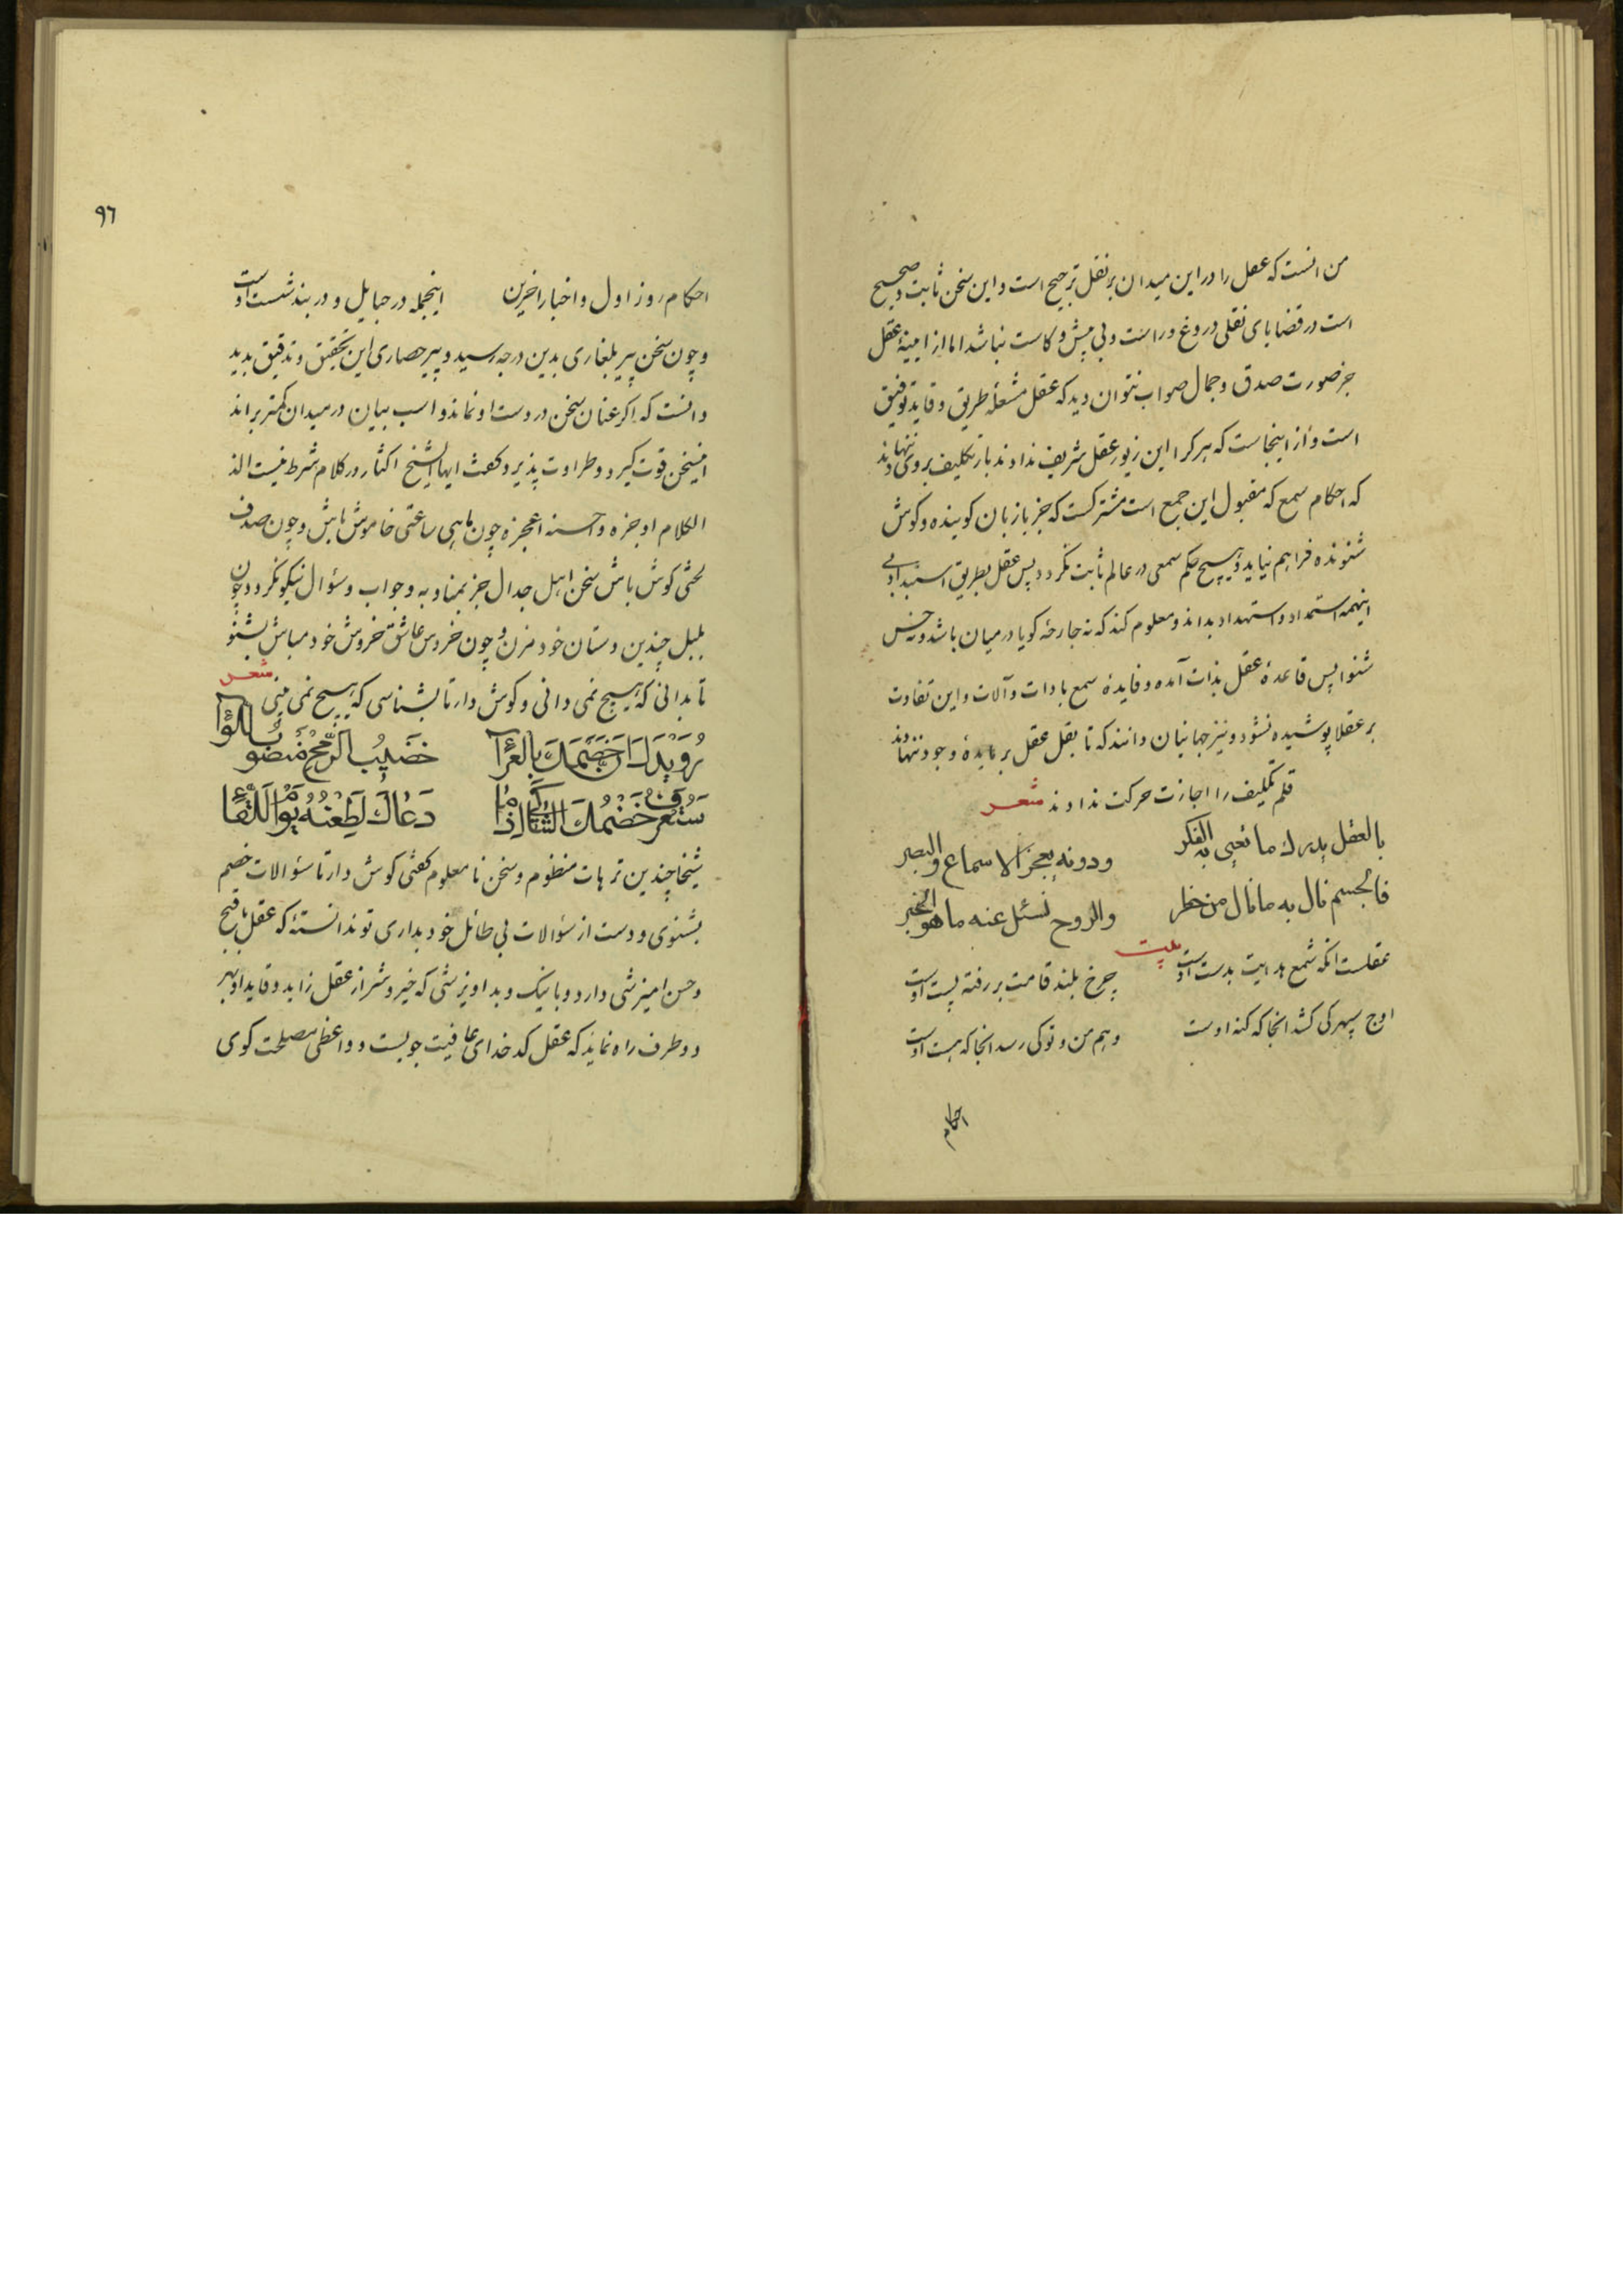 من انست که عقل را در این میدان بر نقل ترجیح است و این سخن ثابت و صحیح
است در قضایای نقلی دروغ و راست و بی پیش و کاست نباشد اما از ایینهٔ عقل
جز صورت صدق و جمال صواب نتوان دید که عقل مشعلهٔ طریق و قاید توفیق
است و از اینجاست که هر کرا این زیور عقل شریف ندادند بار تکلیف بر وی ننهادند
که احکام سمع که مقبول این جمع است مشترکست که جز با زبان کوینده و کوش
شنونده فراهم نیاید و هیچ حکم سمعی در عالم ثابت نکردد پس عقل بطریق استبداد بی
اینهمه استمداد و استهداد بداند و معلوم کند که نه جارحهٔ کویا در میان باشد و نه حس
شنوا پس قاعدهٔ عقل بذات آمده و فایدهٔ سمع بادات و آلات و این تفاوت
بر عقلا پوشیده نشود و نیز جهانیان دانند که تا بقل عقل بر مایدهٔ وجود ننهادند
قلم تکلیف را اجازت حرکت ندادند شعر
بالعقل یدرك ما تعیی به الفکر ودونه یعجز الاسماع والبصر
فالجسم نال به ما نال من خطر والروح تسئل عنه ما هو الخبر
بیت
عقلست انکه شمع هدایت بدست اوست چرخ بلند قامت بر رفته پست اوست
اوج سپهر کی کشد انجا که کنه اوست وهم من و تو کی رسد انجا که هست اوست
احکام
٩٦
احکام روز اول و اخبار اخرین اینجمله در حبایل و در بند شست اوست
و چون سخن پیر بلغاری بدین درجه رسید و پیر حصاری این تحقیق و تدقیق بدید
دانست که اکر عنان سخن در دست او نماند و اسب بیان در میدان کمتر براند
اینسخن قوت کیرد و طراوت پذیرد و کفت ایها الشیخ اکثار در کلام شرط نیست الذ
الکلام اوجزه و احسنه اعجزه چون ماهی ساعتی خاموش باش و چون صدف
لختی کوش باش سخن اهل جدال جز بمناوبه و جواب و سؤال نیکو نکردد و چون
بلبل چندین دستان خود مزن و چون خروس عاشق خروش خود مباش بشنو
تا بدانی که هیچ نمی دانی و کوش دار تا بشناسی که هیچ نمی بینی شعر
رُوَيْدَكَ اِنَّ خَصْمَكَ بالعَرَٓا خَضِيبُ الرُّمْحِ مَنْضُو
سَتَعْرِفُ خَصْمَكَ الشَّاكِي اِذَا مَا دَعَاكَ لِطَعْنِهِ يَوْمَ اللِّقَٓا
شیخا چندین ترهات منظوم و سخن نا معلوم کفتی کوش دار تا سؤالات خصم
بشنوی و دست از سؤالات بی طائل خود بداری تو ندانستهٔ که عقل با قبح
و حسن امیزشی دارد و با نیک و بد اویزشی که خیر و شر از عقل زاید و قاید او بهر
دو طرف راه نماید که عقل کدخدای عافیت جویست و واعظی مصلحت کوی